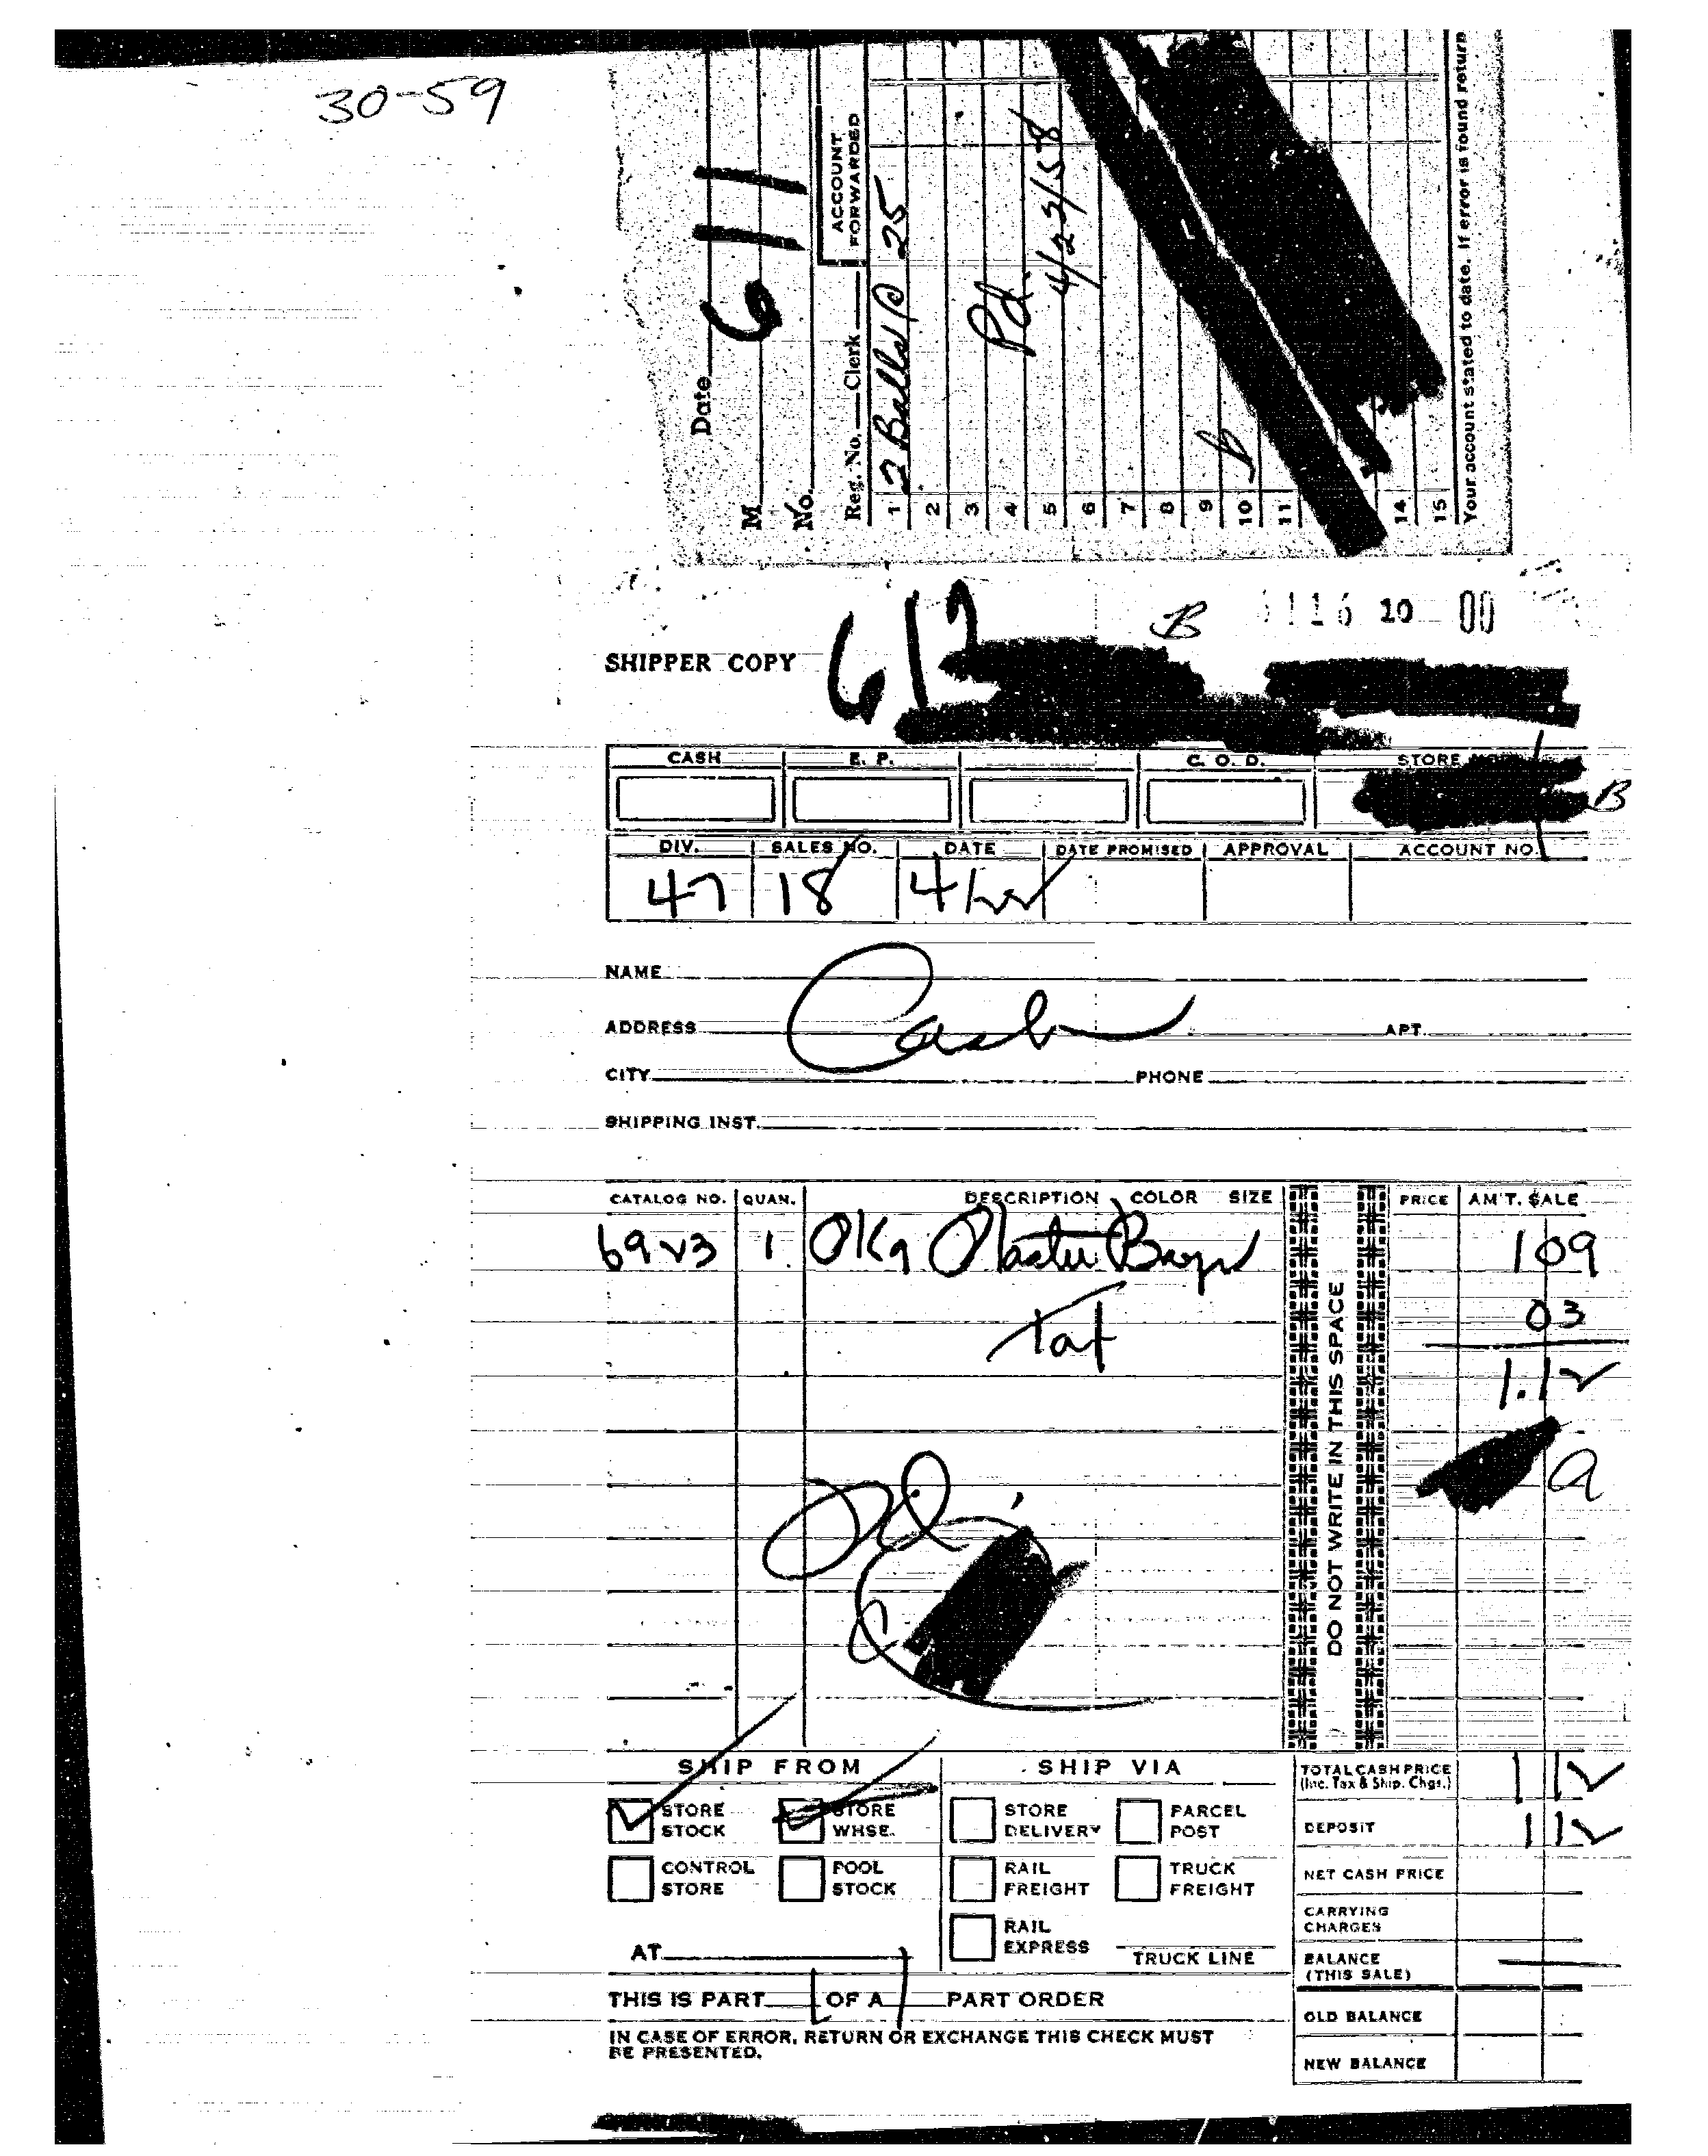 30-59
Date
M
No. 611
Reg. No. Clerk ACCOUNT FORWARDED
1 2 Balls @ 25
2
3
4 Pd.
5 4/23/58
6
7
8
9
10 b
11
14
15
Your account stated to date. If error is found return
B 1116 10 00
SHIPPER COPY 612
CASH E. P. C. O. D. STORE
B
DIV. SALES NO. DATE DATE PROMISED APPROVAL ACCOUNT NO.
47 18
NAME
Cash
ADDRESS APT.
CITY PHONE
SHIPPING INST.
CATALOG NO. QUAN. DESCRIPTION COLOR SIZE PRICE AM'T. SALE
6923 1 Plaster 1 09
Tax 03
1.12
a
DO NOT WRITE IN THIS SPACE
SHIP FROM SHIP VIA
STORE STOCK STORE WHSE. STORE DELIVERY PARCEL POST
CONTROL STORE POOL STOCK RAIL FREIGHT TRUCK FREIGHT
RAIL EXPRESS
AT TRUCK LINE
THIS IS PART 1 OF A 1 PART ORDER
IN CASE OF ERROR, RETURN OR EXCHANGE THIS CHECK MUST
BE PRESENTED.
TOTAL CASH PRICE 1 12
(Inc. Tax & Ship. Chgs.)
DEPOSIT 1 12
NET CASH PRICE
CARRYING CHARGES
BALANCE (THIS SALE)
OLD BALANCE
NEW BALANCE